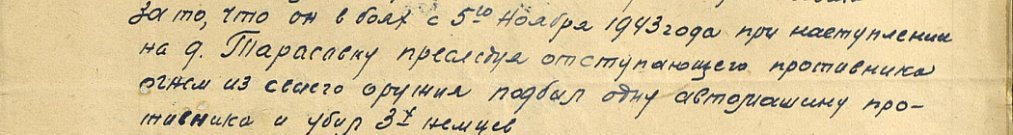 за то, что он в боях с 5го ноября 1943 года при наступлении
на д. Тарасовку преследуя отступающего противника
огнем из своего оружия подбил одну автомашину про-
тивника и убил 3х немцев